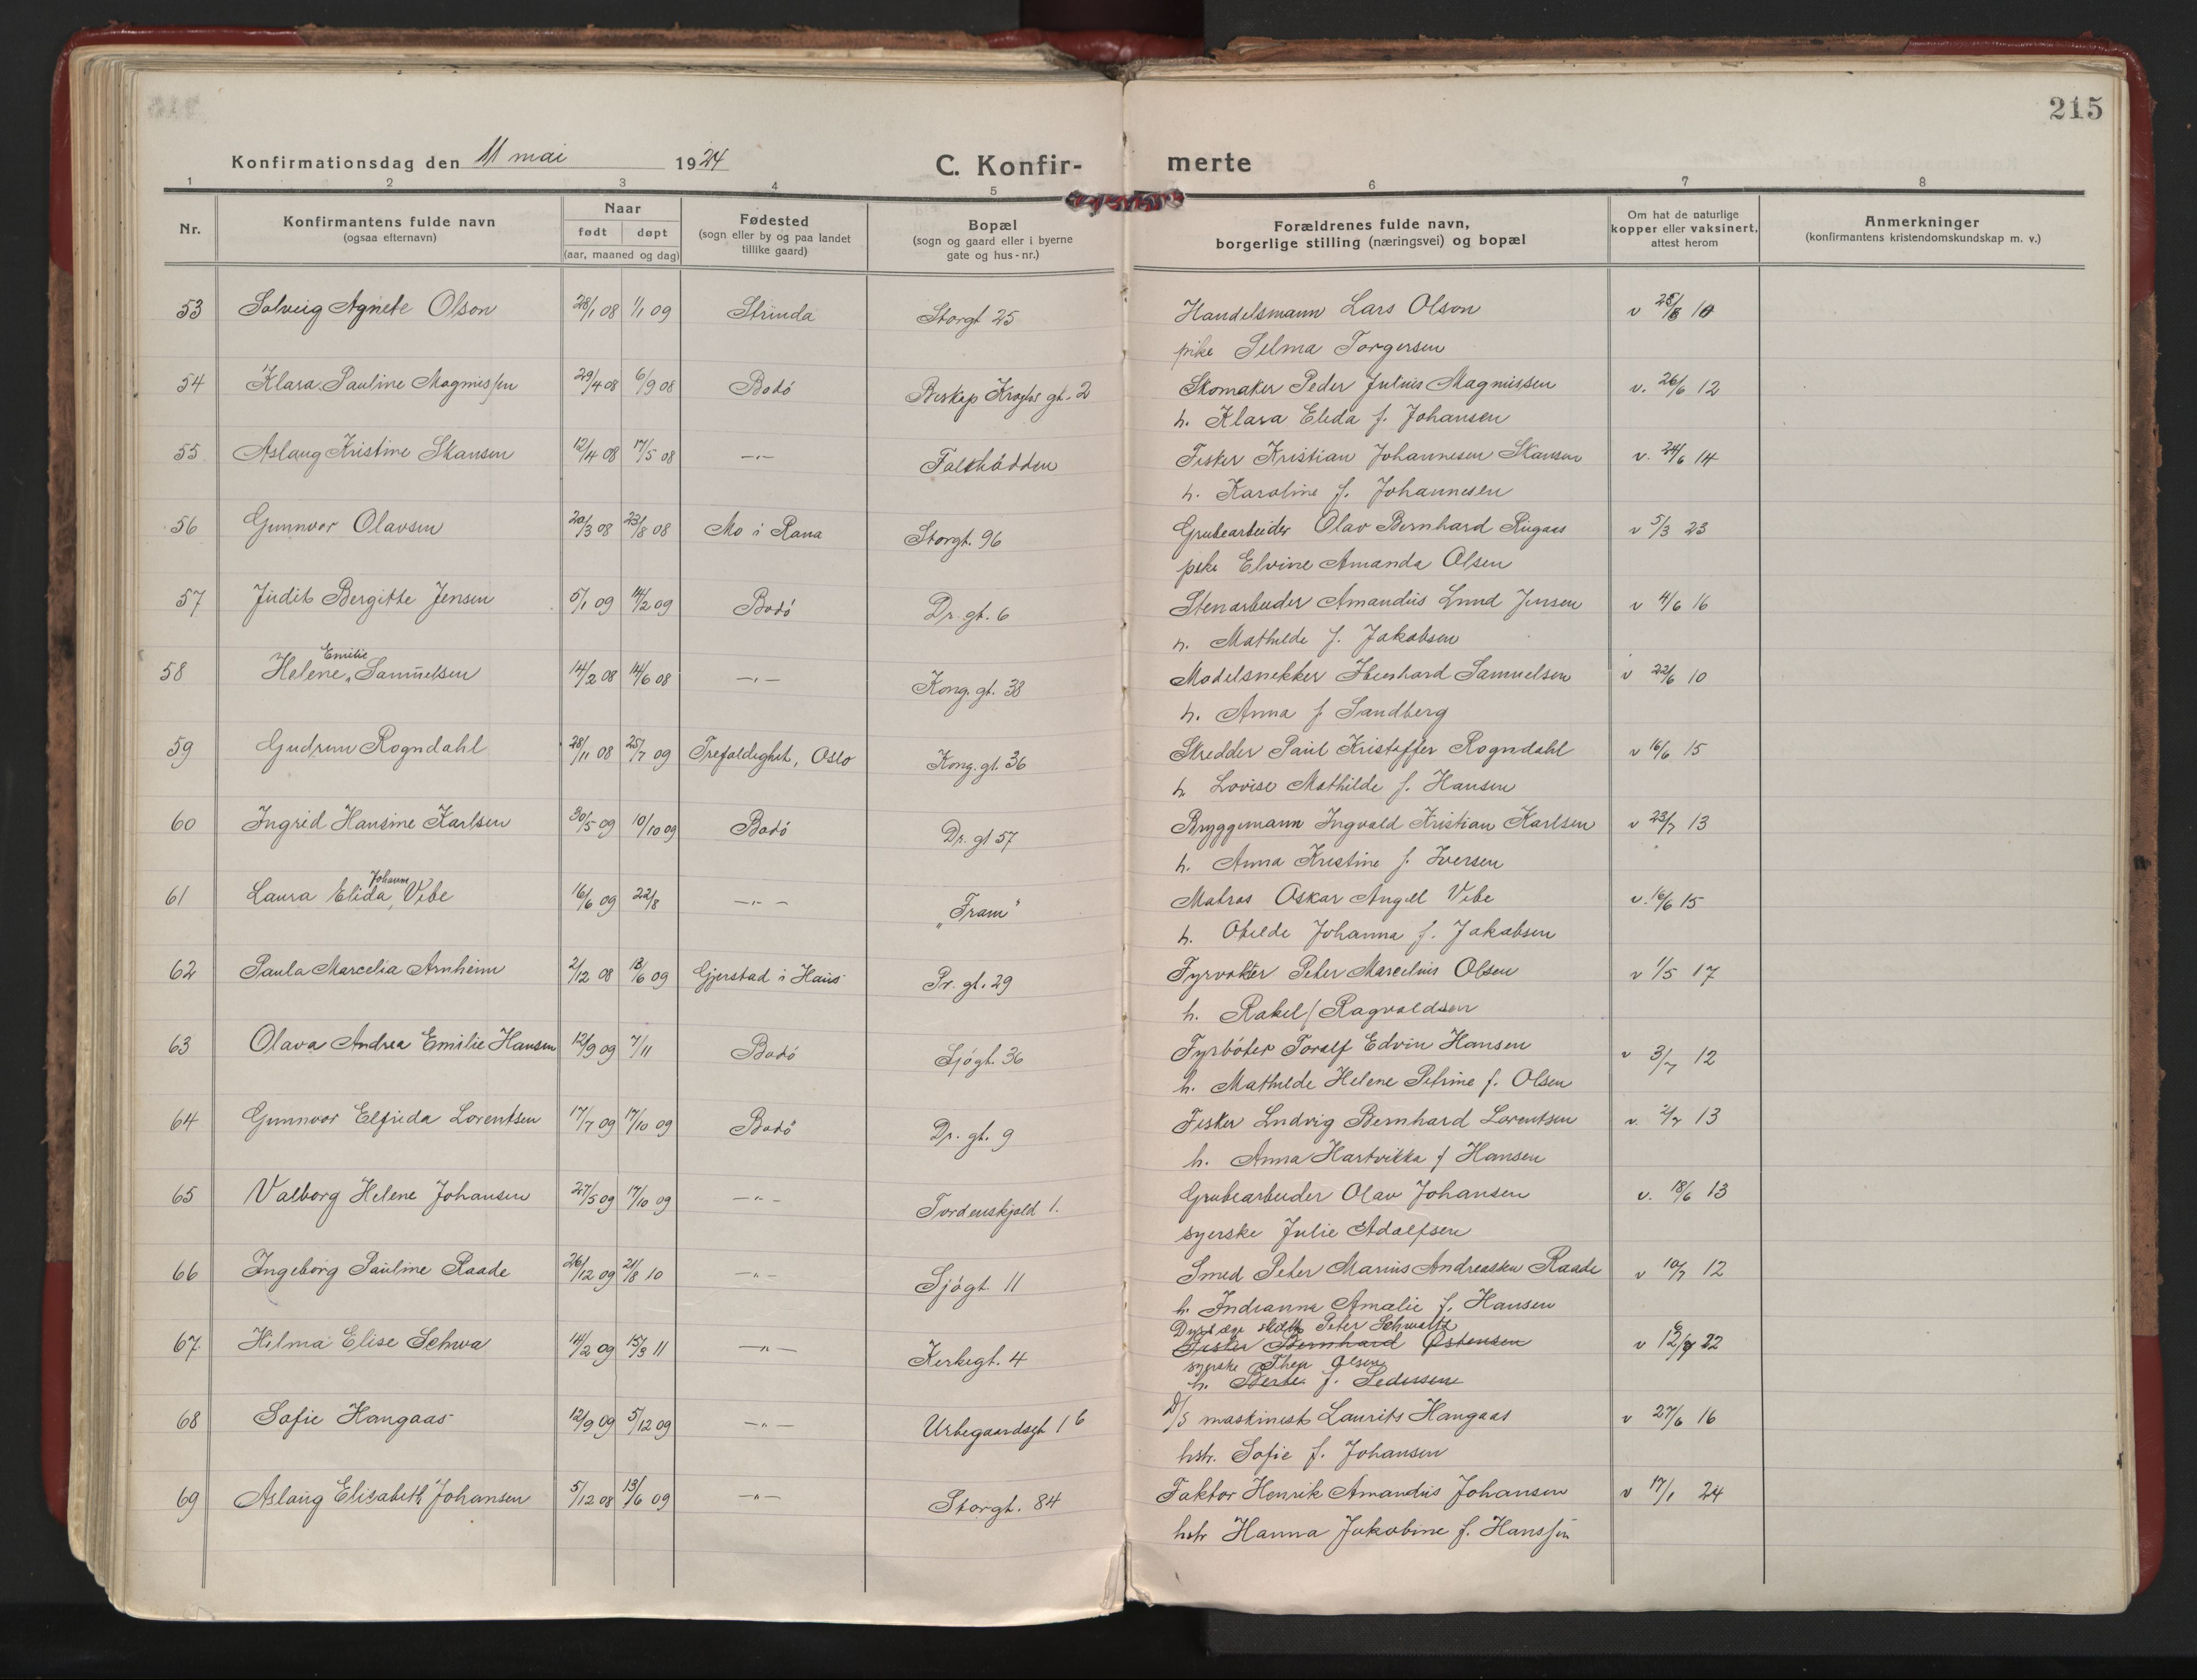 215
Konfirmationsdag den 11 mai 1924
C. Konfir-
merte
1 2 3 4 5 6 7 8
Nr.
Konfirmantens fulde navn
(ogsaa efternavn)
Naar
født døpt
(aar, maaned og dag)
Fødested
(sogn eller by og paa landet
tillike gaard)
Bopæl
(sogn og gaard eller i byerne
gate og hus-nr.)
Forældrenes fulde navn,
borgerlige stilling (næringsvei) og bopæl
Om hat de naturlige
kopper eller vaksinert,
attest herom
Anmerkninger
(konfirmantens kristendomskundskap m. v.)
53 Solveig Agnete Olson 28/1 08 1/1 09 Strinda Storgt 25 Handelsmann Lars Olson v 10
pike Selma Torgersen
54 Klara Pauline Magnissen 29/4 08 6/9 08 Bodó Biskop Kroghs gt. 2 Skomaker Peder Julius Magnussen v. 26/6 12
h. Klara Elida f. Johansen
55 Aslaug Kristine Skansen 12/4 08 17/5 08 —"— Fisker Kristian Johannesen Skansen v. 24/6 14
h. Karoline f. Johannesen
56 Gunnvor Olavsen 20/3 08 23/8 08 Mo i Rana Storgt. 96 Grubearbeider Olav Bernhard v 5/3 23
pike Elvine Amanda Olsen
57 Judit Bergitte Jensen 5/1 09 14/2 09 Bodó Dr. gt. 6 Stenarbeider Amandus Lund Jensen v 4/6 16
h. Mathilde f. Jakobsen
Emilie
58 Helene, Samuelsen 14/2 08 14/6 08 —"— Kong. gt. 38 Modelsnekker Samuelsen v 22/6 10
h. Anna f Sandberg
59 Gudrun Rogndahl 28/11 08 25/7 09 Trefoldighet, Oslo Kong. gt. 36 Skredder Paul Kristoffer Rogndahl v 16/6 15
h Lovise Mathilde f. Hansen
60 Ingrid Hansine Karlsen 30/5 09 10/10 09 Bodó Dr. gt 57 Bryggemann Ingvald Kristian Karlsen v 23/7 13
h. Anna Kristine f. Iversen
Johanne
61 Laura Elida, Vibe 16/6 09 22/8 —"— „Fram" Matros Oskar Angell Vibe v. 16/6 15
h. Otilde Johanna f. Jakobsen
62 Paula Marcelia Arnheim 2/12 08 13/6 09 Gjerstad i Haus Pr. gt. 29 Fyrvokter Peter Marcelius Olsen v 1/5 17
h. Rakel f Ragvaldsen
63 Olava Andrea Emilie Hansen 12/9 09 7/11 Bodó Sjógt. 36 Fyrbóter Toralf Edvin Hansen v 3/7 12
h. Mathilde Helene Petrine f. Olsen
64 Gunnvor Elfrida Lorentsen 17/7 09 17/10 09 Bodó Dr. gt. 9 Fisker Ludvig Bernhard Lorentsen v. 2/7 13
h. Anna Hartvikka f Hansen
65 Valborg Helene Johansen 27/5 09 17/10 09 —"— Tordenskjold 1. Grubearbeider Olav Johansen v. 18/6 13
syerske Julie Adolfsen
66 Ingeborg Pauline Raade 26/12 09 21/8 10 —"— Sjógt. 11 Smed Peter Marius Andreassen Raade v 10/7 12
h. Indianna Amalie f. Hansen
Peter Schwaltz
67. Hilma Elise Schwa 14/2 09 15/3 11 —"— Kirkegt. 4 Fisker Bernhard Østensen v 22
syerske Thea Olsen
h. Berte. f. Pedersen
68 Sofie Haugaas 12/9 09 5/12 09 —"— D/S maskinist Laurits Haugaas v 27/6 16
hstr. Sofie f. Johansen
69 Aslaug Elisabeth Johansen 5/12 08 13/6 09 —"— Storgt. 84 Faktor Henrik Amandus Johansen v 17/1 24
hstr Hanna Jakobine f. Hanssen